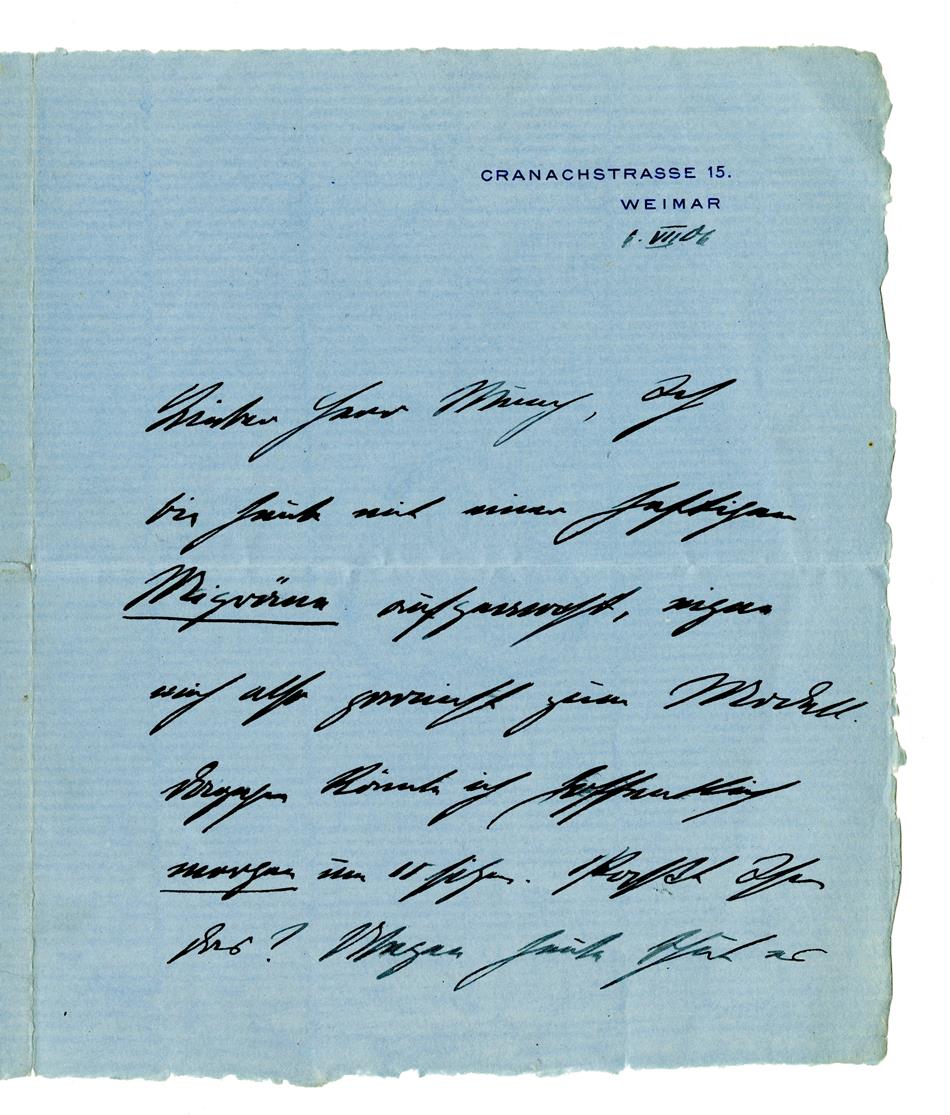 CRANACHSTRASSE 15.
WEIMAR
6. VII 06
Lieber Herr Munch, Ich
bin heute mit einer heftigen
Migräne aufgewacht, eigne
mich also zum Modell.
dagegen könnte ich hoffentlich
morgen um 11 sitzen. Paßt Ihnen
das? Wegen heute thut es